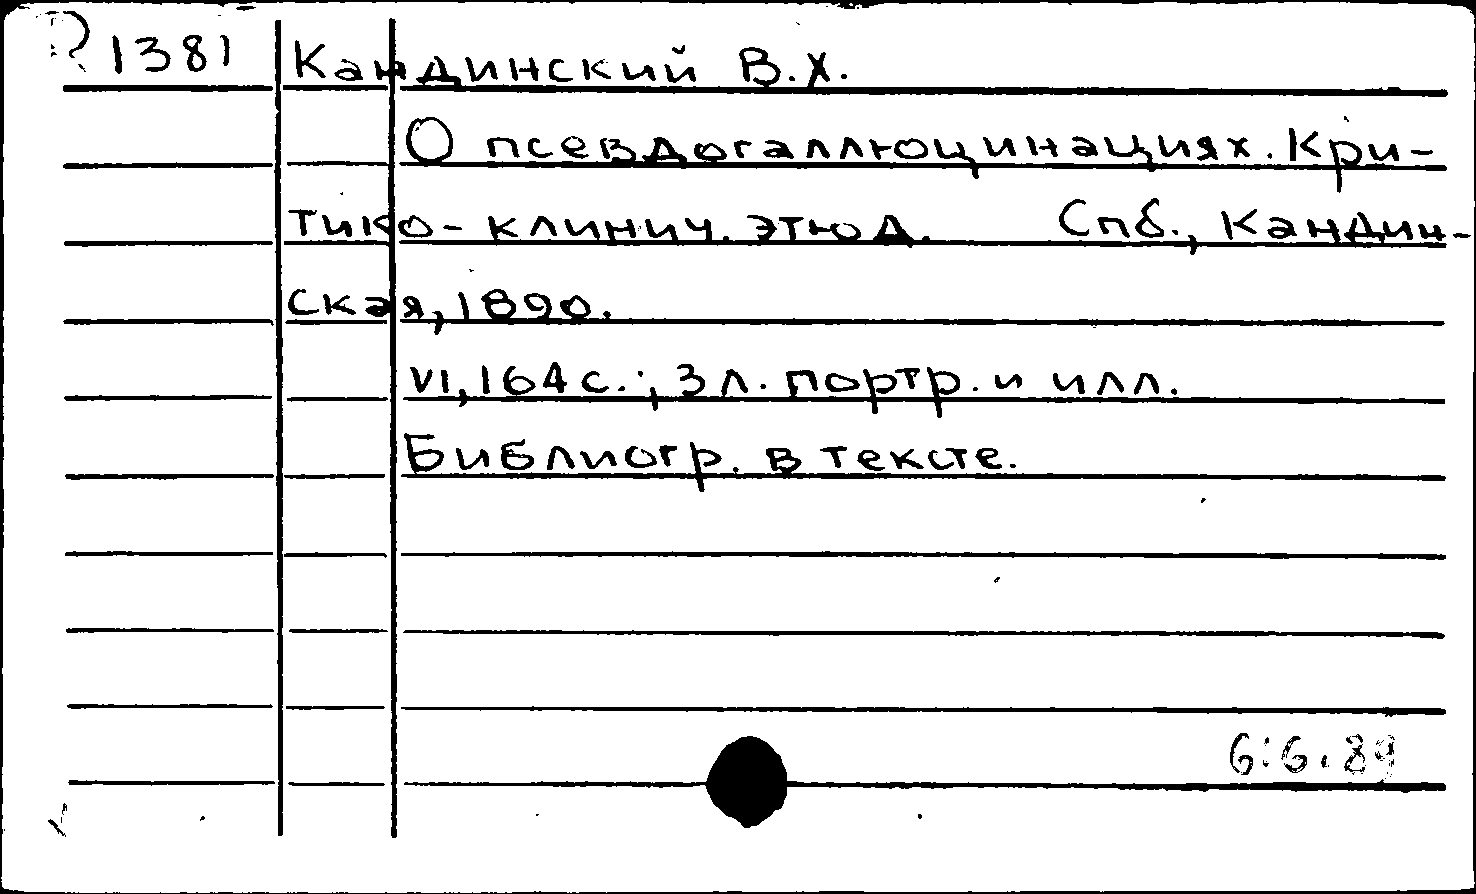 1381 Кандинский В.Х.
О псевдогаллюцинациях. Кри-
тико-клинич. этюд. Спб., Кандин-
ская, 1890.
VI, 164 с.; 3 л. портр. и илл.
Библиогр. в тексте.
6.6.89